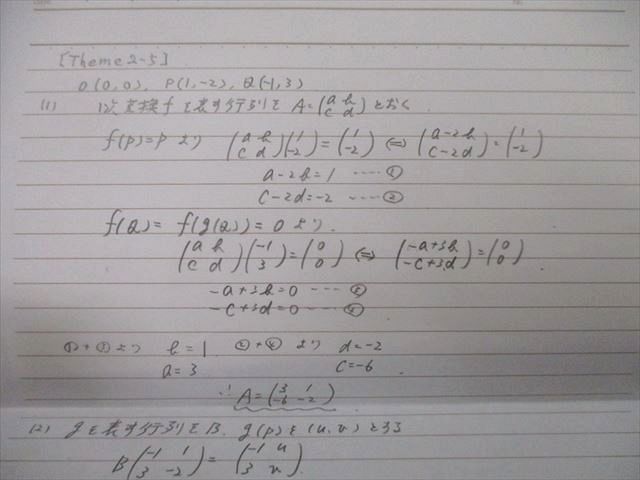 [Theme 2-5]
O(0,0), P(1,-2), Q(-1,3)
(1) 1次変換fを表す行列をA=(a b c d)とおく
f(P)=P より (a b c d)(1 -2)=(1 -2) ⇔ (a-2b c-2d)=(1 -2)
a-2b=1 ----①
c-2d=-2 ----②
f(Q)= f(g(Q))=0 より.
(a b c d)(-1 3)=(0 0) ⇔ (-a+3b -c+3d)=(0 0)
-a+3b=0 ---③
-c+3d=0 ----④
①+③より b=1 ②+④より d=-2
a=3 c=-6
∴ A=(3 1 -6 -2)
(2) gを表す行列をB、g(P)を(u,v)とする
B(-1 1 3 -2)=(-1 u 3 v)